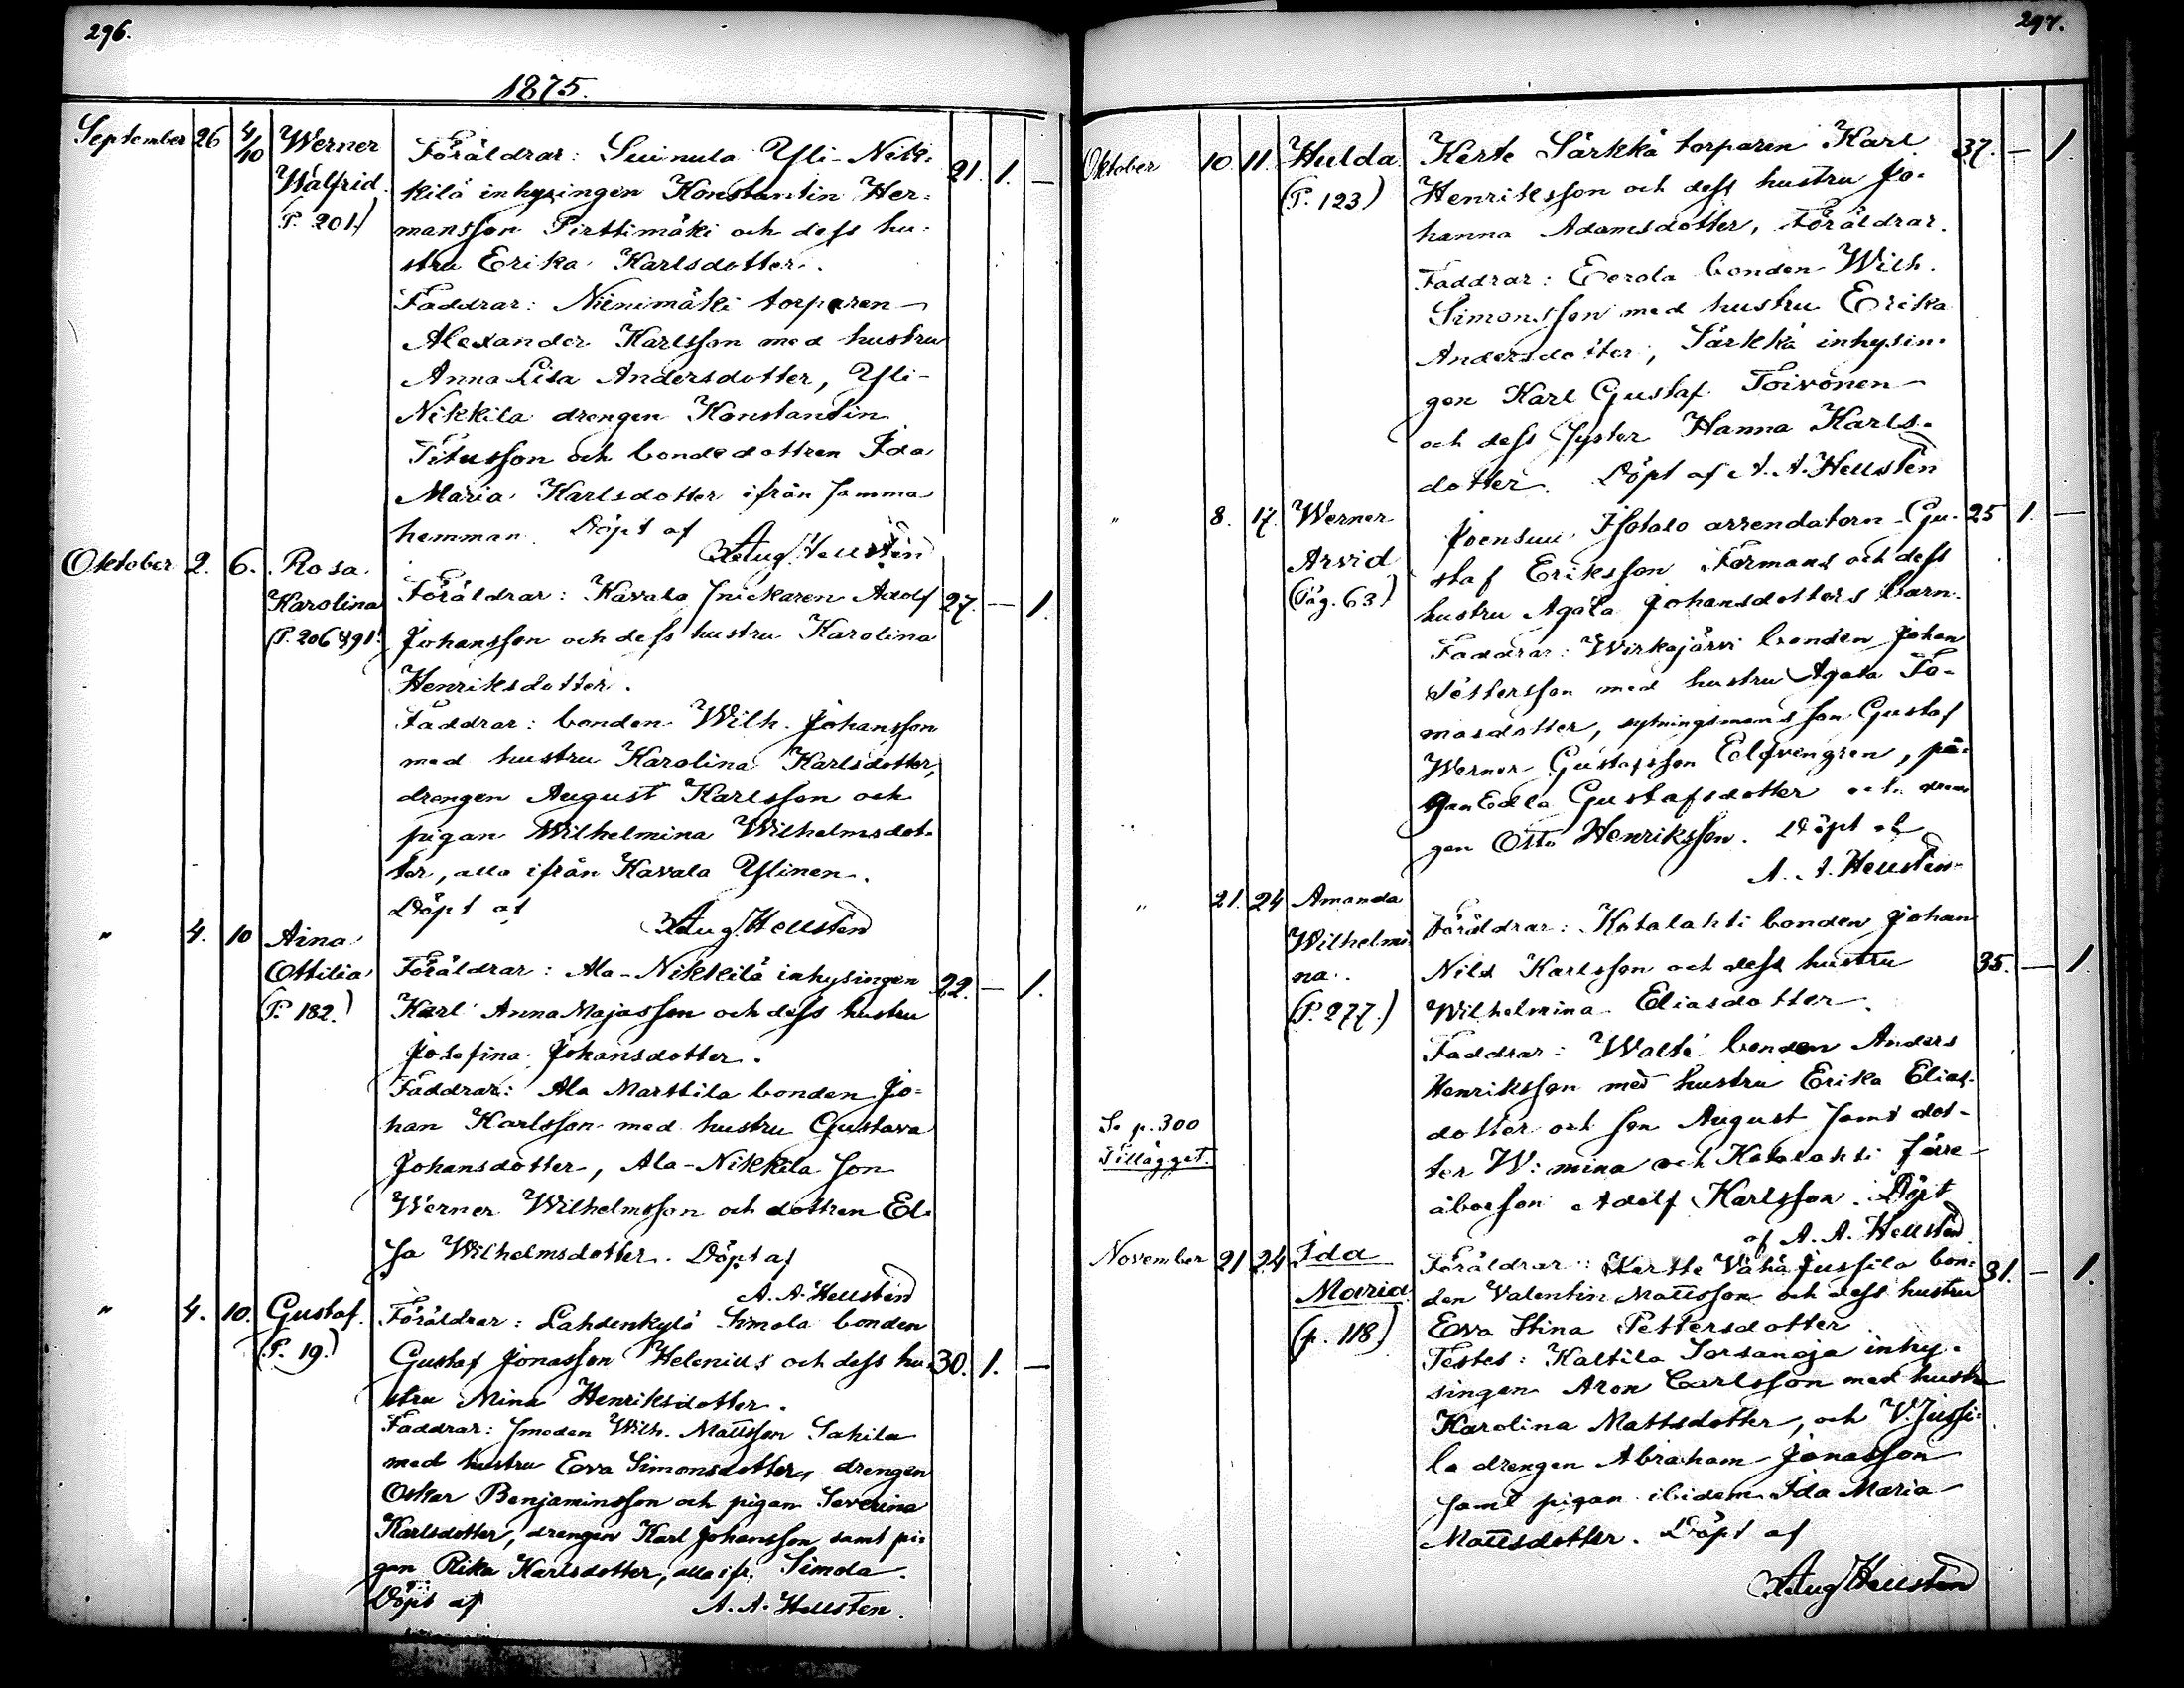 296.
1875.
September 26 4/10 Werner Walfrid (P. 201.)
Föräldrar: Suinula Yli-Nik=
kilä inhysingen Konstantin Her=
mansson Pirttimäki och dess hu=
stru Erika Karlsdotter.
Faddrar: Niinimäki torparen
Alexander Karlsson med hustru
Anna Lisa Andersdotter, Yli-
Nikkila drengen Konstantin
Titusson och bondedottren Ida
Maria Karlsdotter ifrån samma
hemman. Döpt af
Aug. Hellsten
21. 1. —
Oktober 2. 6. Rosa Karolina (P. 206 & 91.)
Föräldrar: Kavala snickaren Adolf
Johansson och dess hustru Karolina
Henriksdotter.
Faddrar: bonden Wilh. Johansson
med hustru Karolina Karlsdotter,
drengen August Karlsson och
pigan Wilhelmina Wilhelmsdot-
ter, alla ifrån Kavala Ylinen.
Döpt af
Aug. Hellsten
27. — 1.
" 4. 10 Aina Ottilia (P. 182.)
Föräldrar: Ala-Nikkilä inhysingen
Karl AnnaMajasson och dess hustru
Josefina Johansdotter.
Faddrar: Ala Marttila bonden Jo=
han Karlsson med hustru Gustava
Johansdotter, Ala-Nikkila son
Werner Wilhelmsson och dottren El-
sa Wilhelmsdotter. Döpt af
A. A. Hellsten
22. — 1.
" 4. 10. Gustaf. (P. 19.)
Föräldrar: Lahdenkylä Simola bonden
Gustaf Jonasson Helenius och dess hu-
stru Mina Henriksdotter.
Faddrar: smeden Wilh. Mattsson Sahila
med hustru Eva Simonsdotter, drengen
Oskar Benjaminsson och pigan Severina
Karlsdotter, drengen Karl Johansson samt pi=
gan Rika Karlsdotter, alla ifr. Simola.
Döpt af
A. A. Hellsten.
30. 1. —
297.
Oktober 10. 11. Hulda (P. 123)
Kerte Särkkä torparen Karl
Henriksson och dess hustru Jo-
hanna Adamsdotter, Föräldrar.
Faddrar: Eerola bonden Wilh.
Simonsson med hustru Erika
Andersdotter, Särkkä inhysin-
gen Karl Gustaf Toivonen
och dess syster Hanna Karls-
dotter. Döpt af A. A. Hellsten
37. — 1.
" 8. 17. Werner Arvid (Pag. 63)
Joensuu Isotalo arrendatorn Gu-
staf Eriksson Formans och dess
hustru Agata Johansdotters barn.
Faddrar: Wirkajärvi bonden Johan
Pettersson med hustru Agata To-
masdotter, sytningsmansson Gustaf
Werner Gustafsson Elfvengren, pi-
gan Edla Gustafsdotter och dren-
gen Otto Henriksson. Döpt af
A. A. Hellsten
25 1. —
" 21. 24 Amanda Wilhelmina. (P. 277.)
Föräldrar: Kotalahti bonden Johan
Nils Karlsson och dess hustru
Wilhelmina Eliasdotter.
Faddrar: Walté bonden Anders
Henriksson med hustru Erika Elias-
dotter och son August samt dot-
ter W:mina och Kotalahti förre
åboeson Adolf Karlsson. Döpt
af A. A. Hellsten.
35. — 1.
Se p. 300
Tillägget.
November 21 24 Ida Maria (p. 118)
Föräldrar: Kertte Vähä Jussila bon=
den Valentin Mattsson och dess hustru
Eva Stina Pettersdotter.
Testes: Kaltila Sorsanoja inhy-
singen Aron Carlsson med hustru
Karolina Mattsdotter, och V. Jussi=
la drengen Abraham Jonasson
samt pigan ibidem Ida Maria
Mattsdotter. Döpt af
Aug. Hellsten
31. — 1.